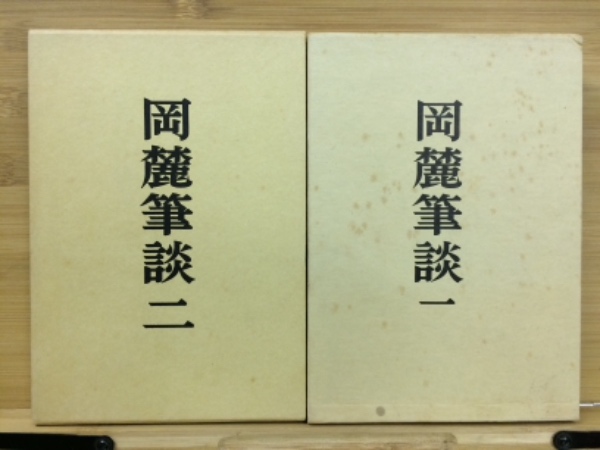 岡麓筆談 一
岡麓筆談 二